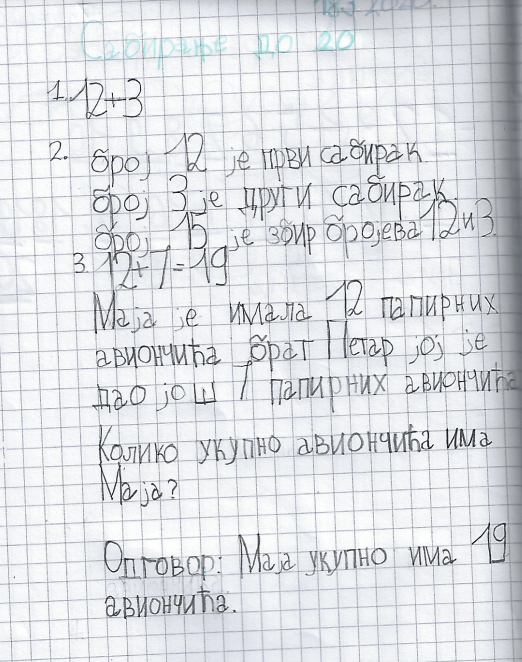 Сабирање до 20
1. 12+3
2. број 12 је први сабирак
број 3 је други сабирак
број 15 је збир бројева 12 и 3.
3. 12+7=19
Маја је имала 12 папирних
авиончића брат Петар јој је
дао још 7 папирних авиончића
Колико укупно авиончића има
Маја?
Одговор: Маја укупно има 19
авиончића.